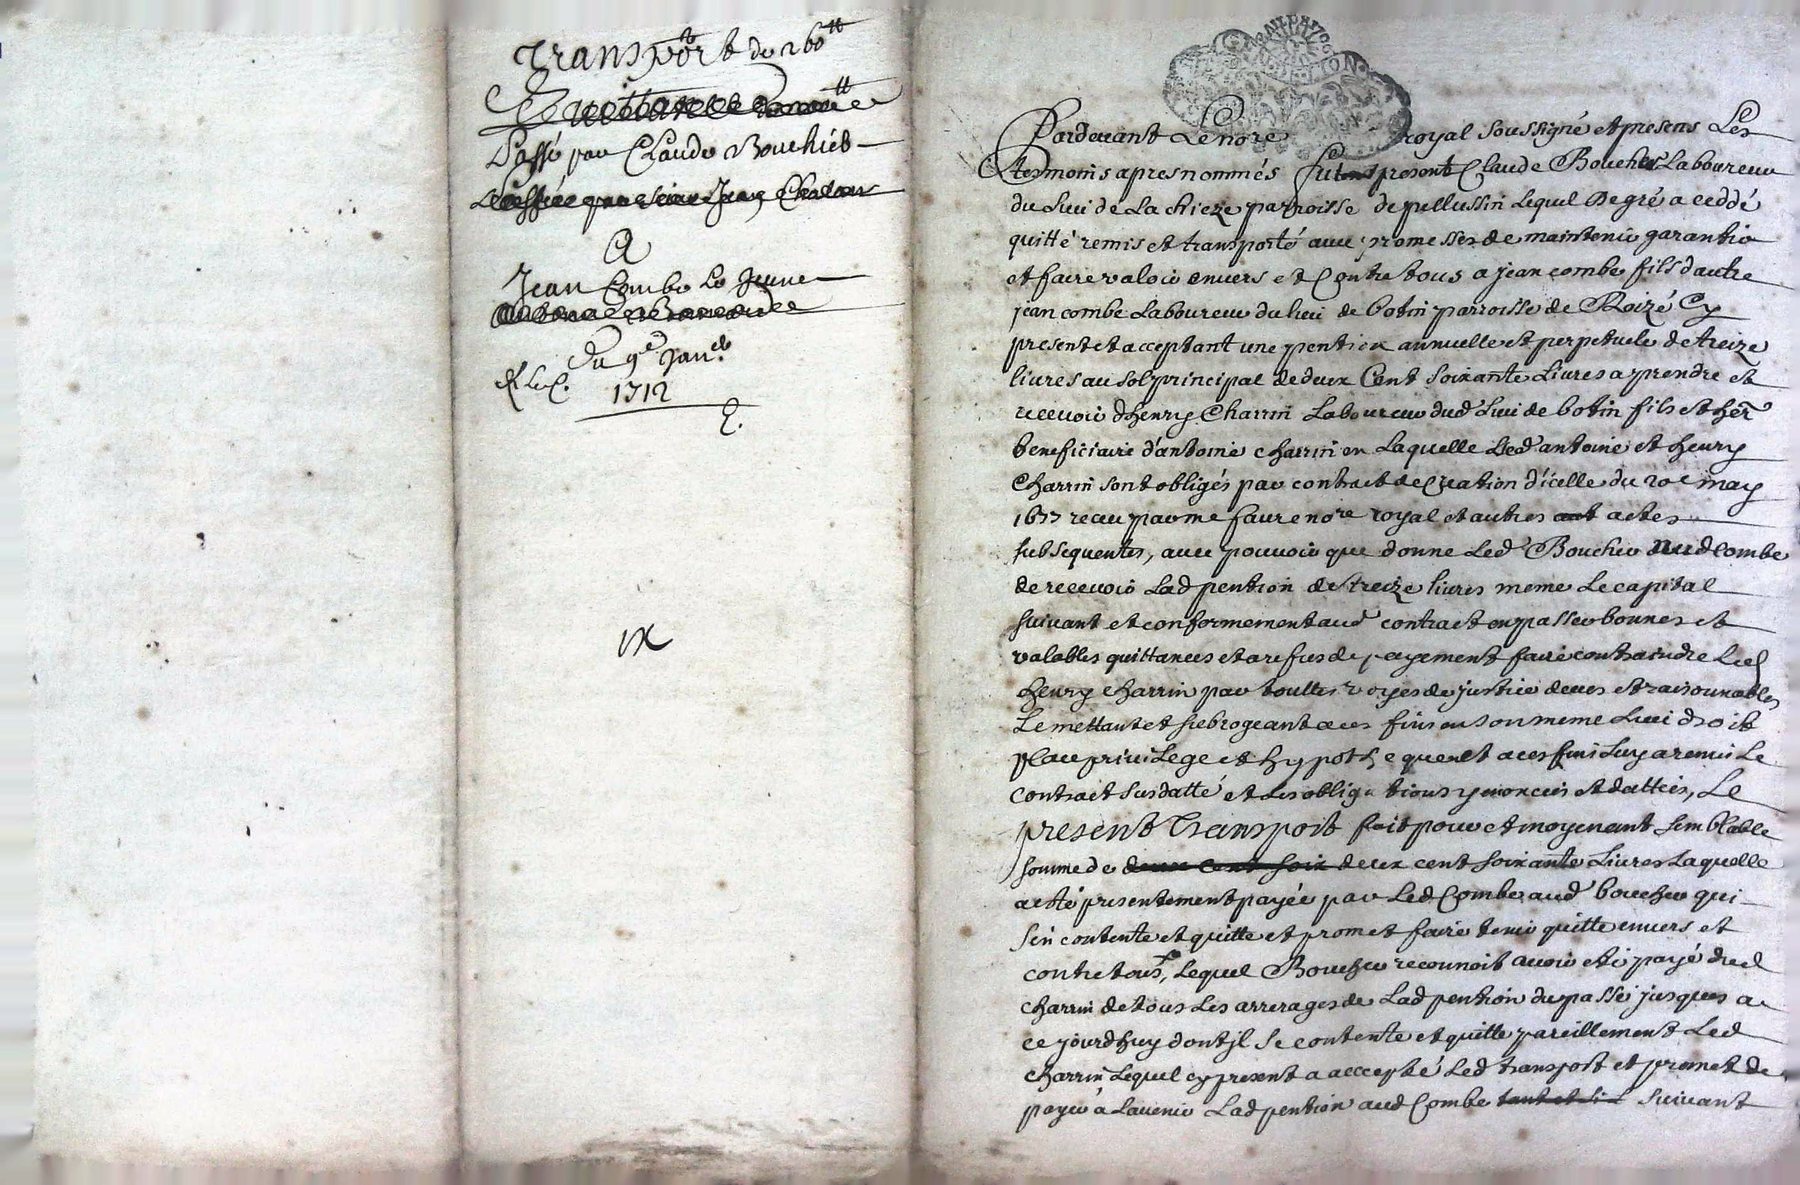 Transport de 260 tt
Quittance
Passé par Claude Bouchiéb
A
Jean Combe le Jeune
du 9e Janer.
1712
IX
Pardevant Le nore royal soussigné et presens Les
tesmoins apres nommés fut present Claude Boucher Laboureur
du Lieu de La parroisse de pellussin Lequel De gré a ceddé
quitté remis et transporté avec promesses de maintenir garantir
et faire valoir envers et Contre tous a jean combe fils d'autre
jean combe Laboureur du lieu de botin parroisse de Roizé Cy
present et acceptant une pention annuelle et perpetuele de treize
livres au sol principal de deux Cent soixante Livres a prendre et
recevoir d'henry Charrin Laboureur dud Lieu de botin fils et her
beneficiaire d'antoine charrin en Laquelle Led antoine et henry
Charrin sont obligés par contract de Creation d'icelle du 20e may
1677 receu par me faure nore royal et autres aut actes
subsequentes, avec pouvoir que donne Led Boucher aud combe
de recevoir Lad pention de treize livres meme Le capital
suivant et conformement aud contract en passer bonnes et
valables quittances et a refus de payement faire contraindre Led
henry charrin par touttes voyes de justice deues et raisonnables
Le mettant et subrogeant a ces fins en son meme Lieu droit
place privilege et hypotheque et a ces fins Luy a remis Le
contract susdatté et Les obligations y enoncées et dattées, Le
present Transport fait pour et moyenant semblable
somme de deux cent soix deux cent soixante Livres Laquelle
a esté presentement payée par Led Combe aud boucher qui
s'en contente et quitte et promet faire tenir quitte envers et
contre tous, Lequel Boucher reconnoit avoir eté payé dud
charrin de tous Les arrerages de Lad pention du passé jusques a
ce jourdhuy dont jl se contente et quitte pareillement Led
charrin Lequel cy present a accepté Led transport et promet de
payer à Lavenir Lad pention aud Combe suivant